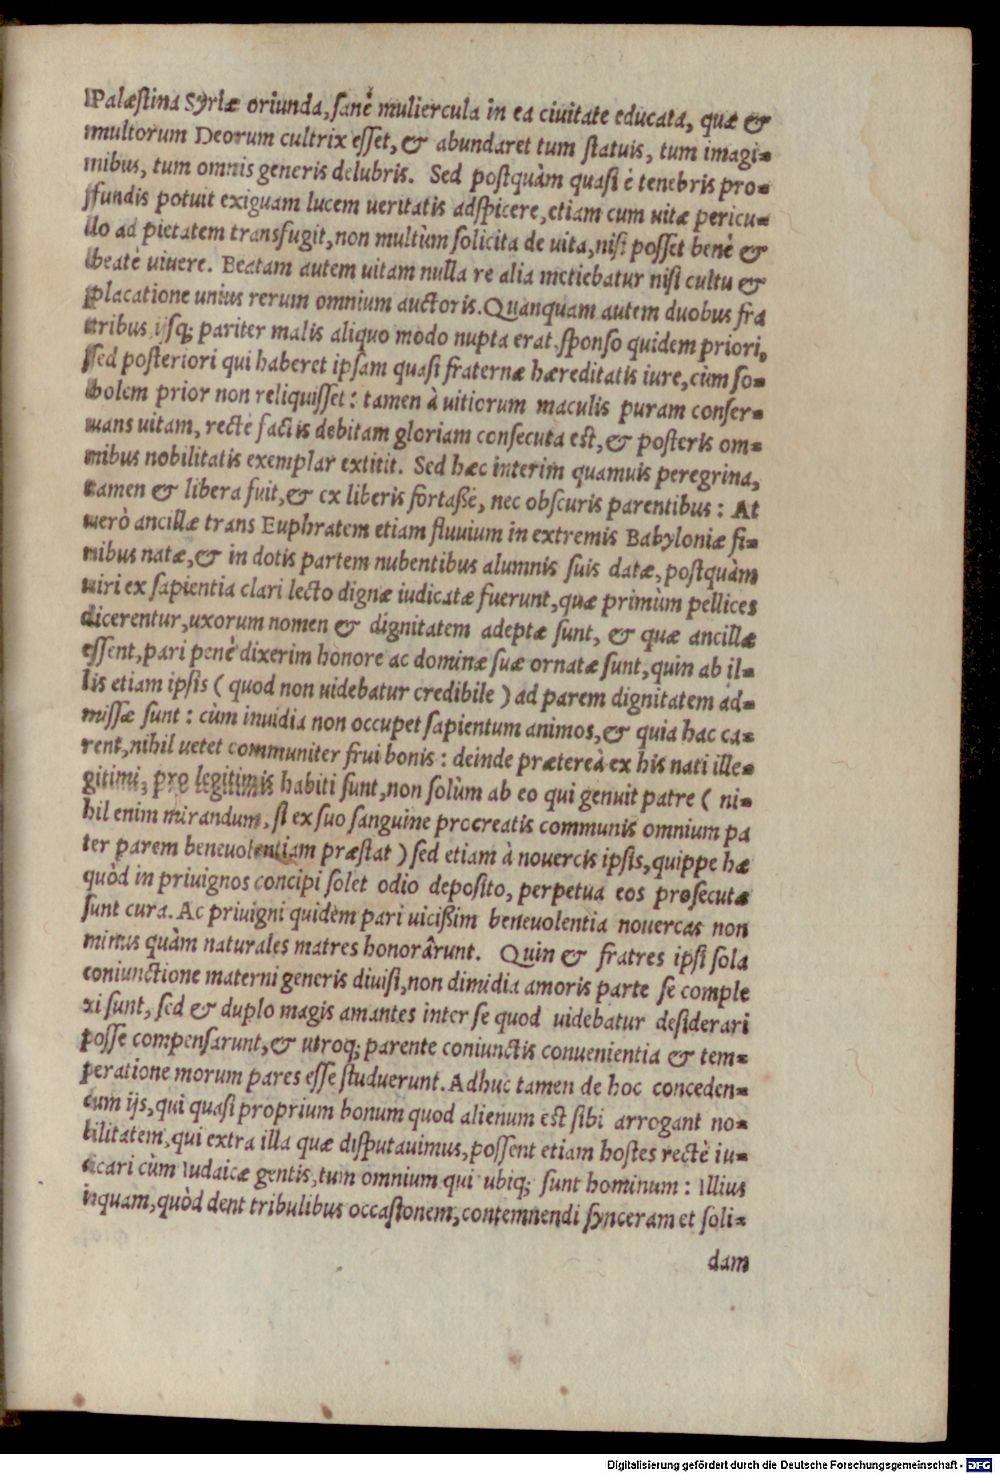 Palæstina Syriæ oriunda, sanè muliercula in ea ciuitate educata, quæ &
multorum Deorum cultrix esset, & abundaret tum statuis, tum imagi=
nibus, tum omnis generis delubris. Sed postquàm quasi è tenebris pro=
fundis potuit exiguam lucem ueritatis adspicere, etiam cum uitæ pericu=
lo ad pietatem transfugit, non multùm solicita de uita, nisi posset benè &
beatè uiuere. Beatam autem uitam nulla re alia metiebatur nisi cultu &
placatione unius rerum omnium auctoris. Quanquam autem duobus fra
tribus ijsq; pariter malis aliquo modo nupta erat, sponso quidem priori,
sed posteriori qui haberet ipsam quasi fraternæ hæreditatis iure, cùm so=
bolem prior non reliquisset: tamen à uitiorum maculis puram conser=
uans uitam, rectè factis debitam gloriam consecuta est, & posteris om=
nibus nobilitatis exemplar extitit. Sed hæc interim quamuis peregrina,
tamen & libera fuit, & ex liberis fortaßè, nec obscuris parentibus: At
uerò ancillæ trans Euphratem etiam fluuium in extremis Babyloniæ fi=
nibus natæ, & in dotis partem nubentibus alumnis suis datæ, postquàm
uiri ex sapientia clari lecto dignæ iudicatæ fuerunt, quæ primùm pellices
dicerentur, uxorum nomen & dignitatem adeptæ sunt, & quæ ancillæ
essent, pari penè dixerim honore ac dominæ suæ ornatæ sunt, quin ab il=
lis etiam ipsis ( quod non uidebatur credibile ) ad parem dignitatem ad=
missæ sunt: cùm inuidia non occupet sapientum animos, & quia hac ca=
rent, nihil uetet communiter frui bonis: deinde prætereà ex his nati ille=
gitimi, pro legitimis habiti sunt, non solùm ab eo qui genuit patre ( ni=
hil enim mirandum, si ex suo sanguine procreatis communis omnium pa
ter parem beneuolentiam præstat ) sed etiam à nouercis ipsis, quippe hæ
quòd in priuignos concipi solet odio deposito, perpetua eos prosecutæ
sunt cura. Ac priuigni quidem pari uicißim beneuolentia nouercas non
minus quàm naturales matres honorârunt. Quin & fratres ipsi sola
coniunctione materni generis diuisi, non dimidia amoris parte se comple
xi sunt, sed & duplo magis amantes inter se quod uidebatur desiderari
posse compensarunt, & utroq; parente coniunctis conuenientia & tem=
peratione morum pares esse studuerunt. Adhuc tamen de hoc conceden=
dum ijs, qui quasi proprium bonum quod alienum est sibi arrogant no=
bilitatem, qui extra illa quæ disputauimus, possent etiam hostes rectè iu=
dicari cùm Iudaicæ gentis, tum omnium qui ubiq; sunt hominum: Illius
inquam, quòd dent tribulibus occasionem, contemnendi synceram et soli=
dam
Digitalisierung gefördert durch die Deutsche Forschungsgemeinschaft - DFG